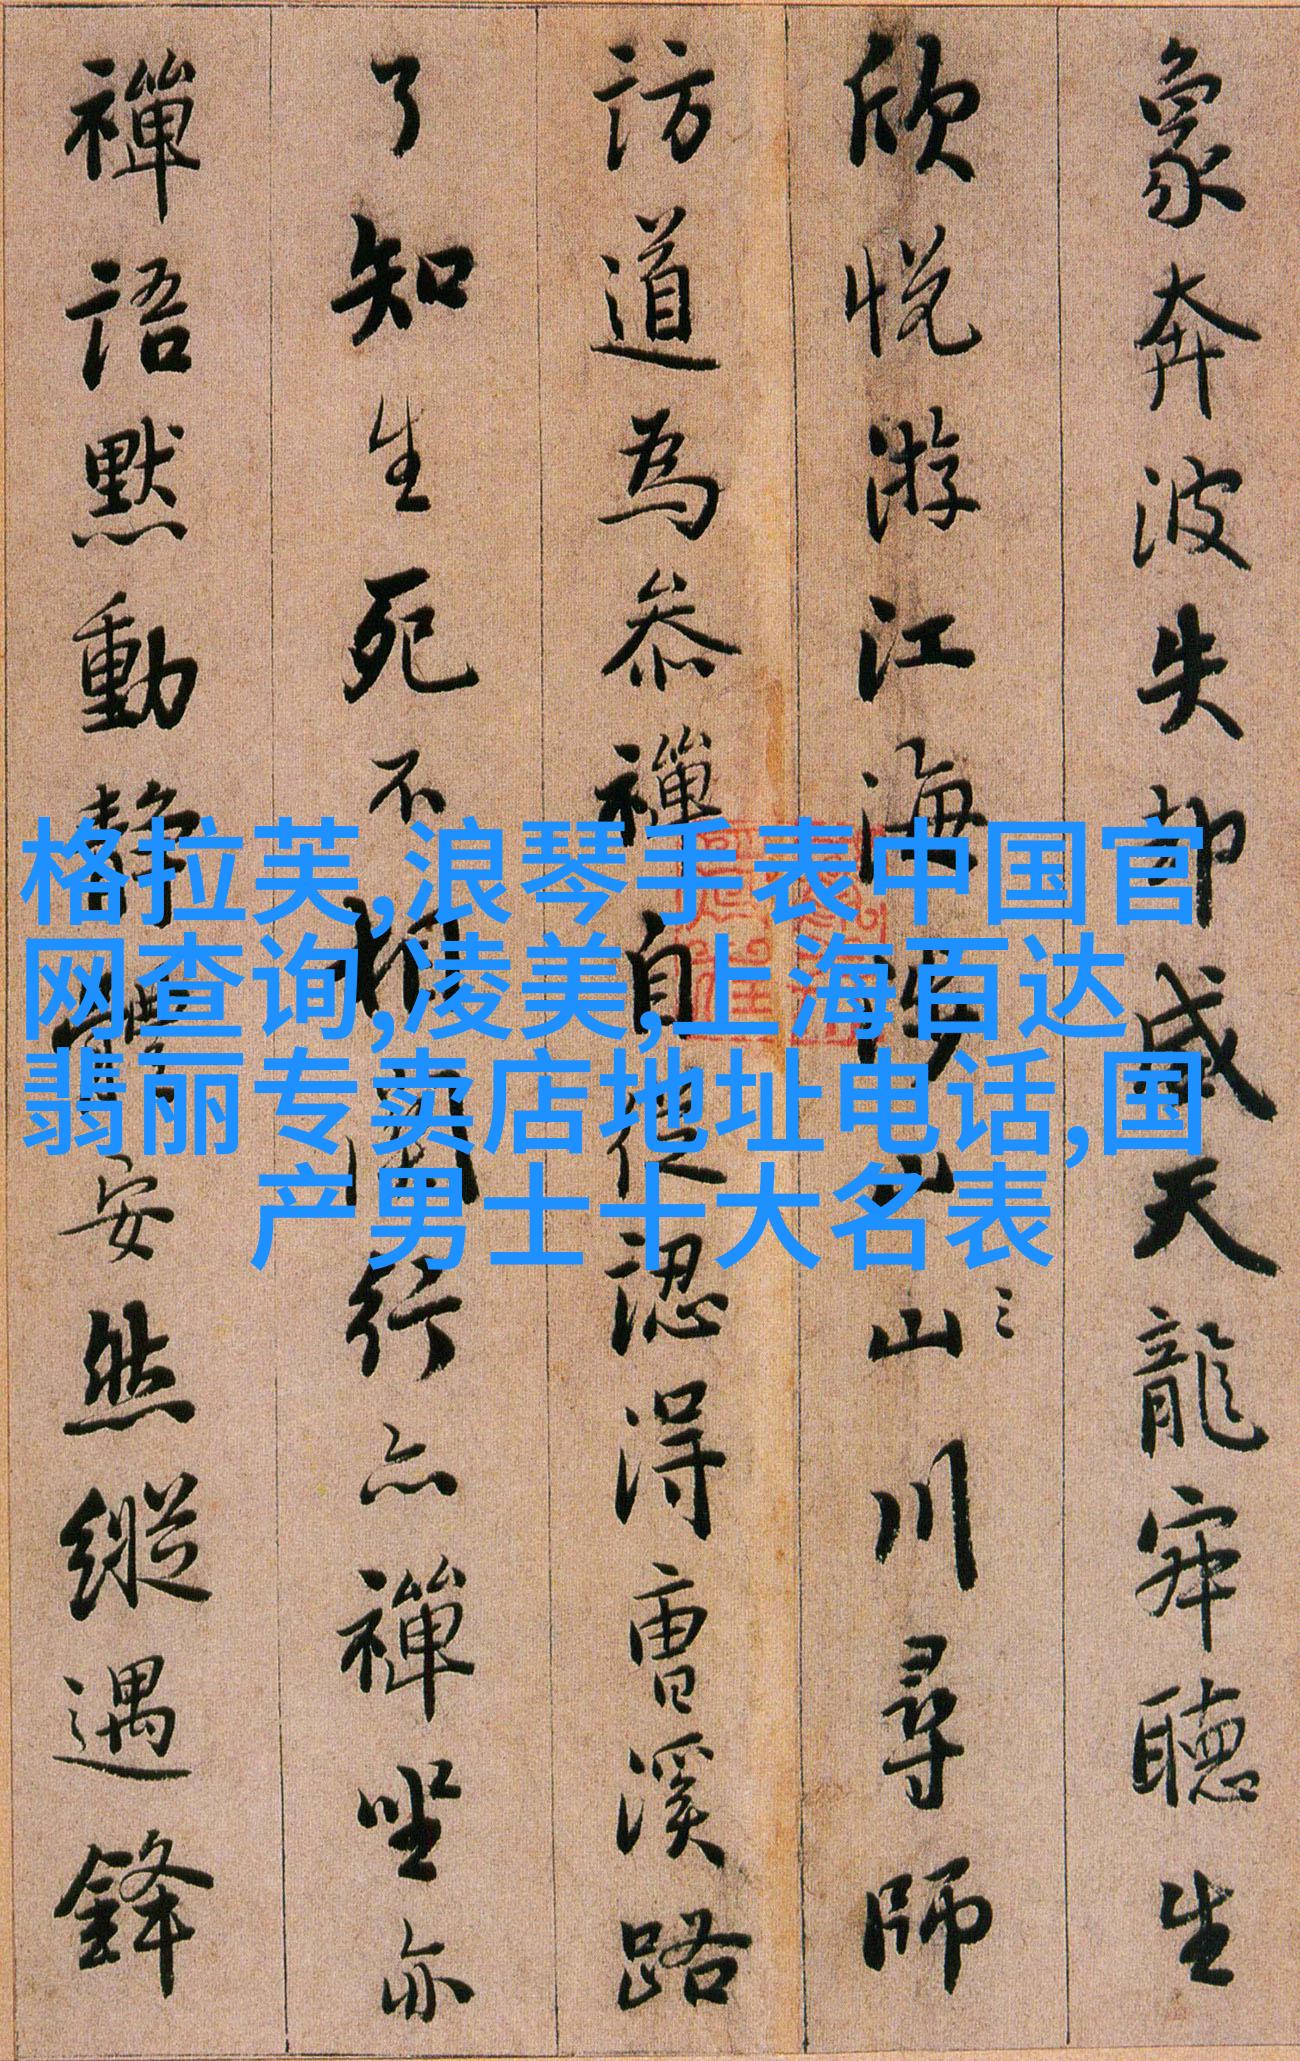 象奔波失却威天龍寂聽生
欣悦游江海涉山山川尋師
訪道為叅禪自從認得曹溪路
了知生死不相關行亦禪坐亦
禪語默動靜體安然縱遇鋒
格拉芙,浪琴手表中国官
网查询,凌美,上海百达
翡丽专卖店地址电话,国
产男士十大名表